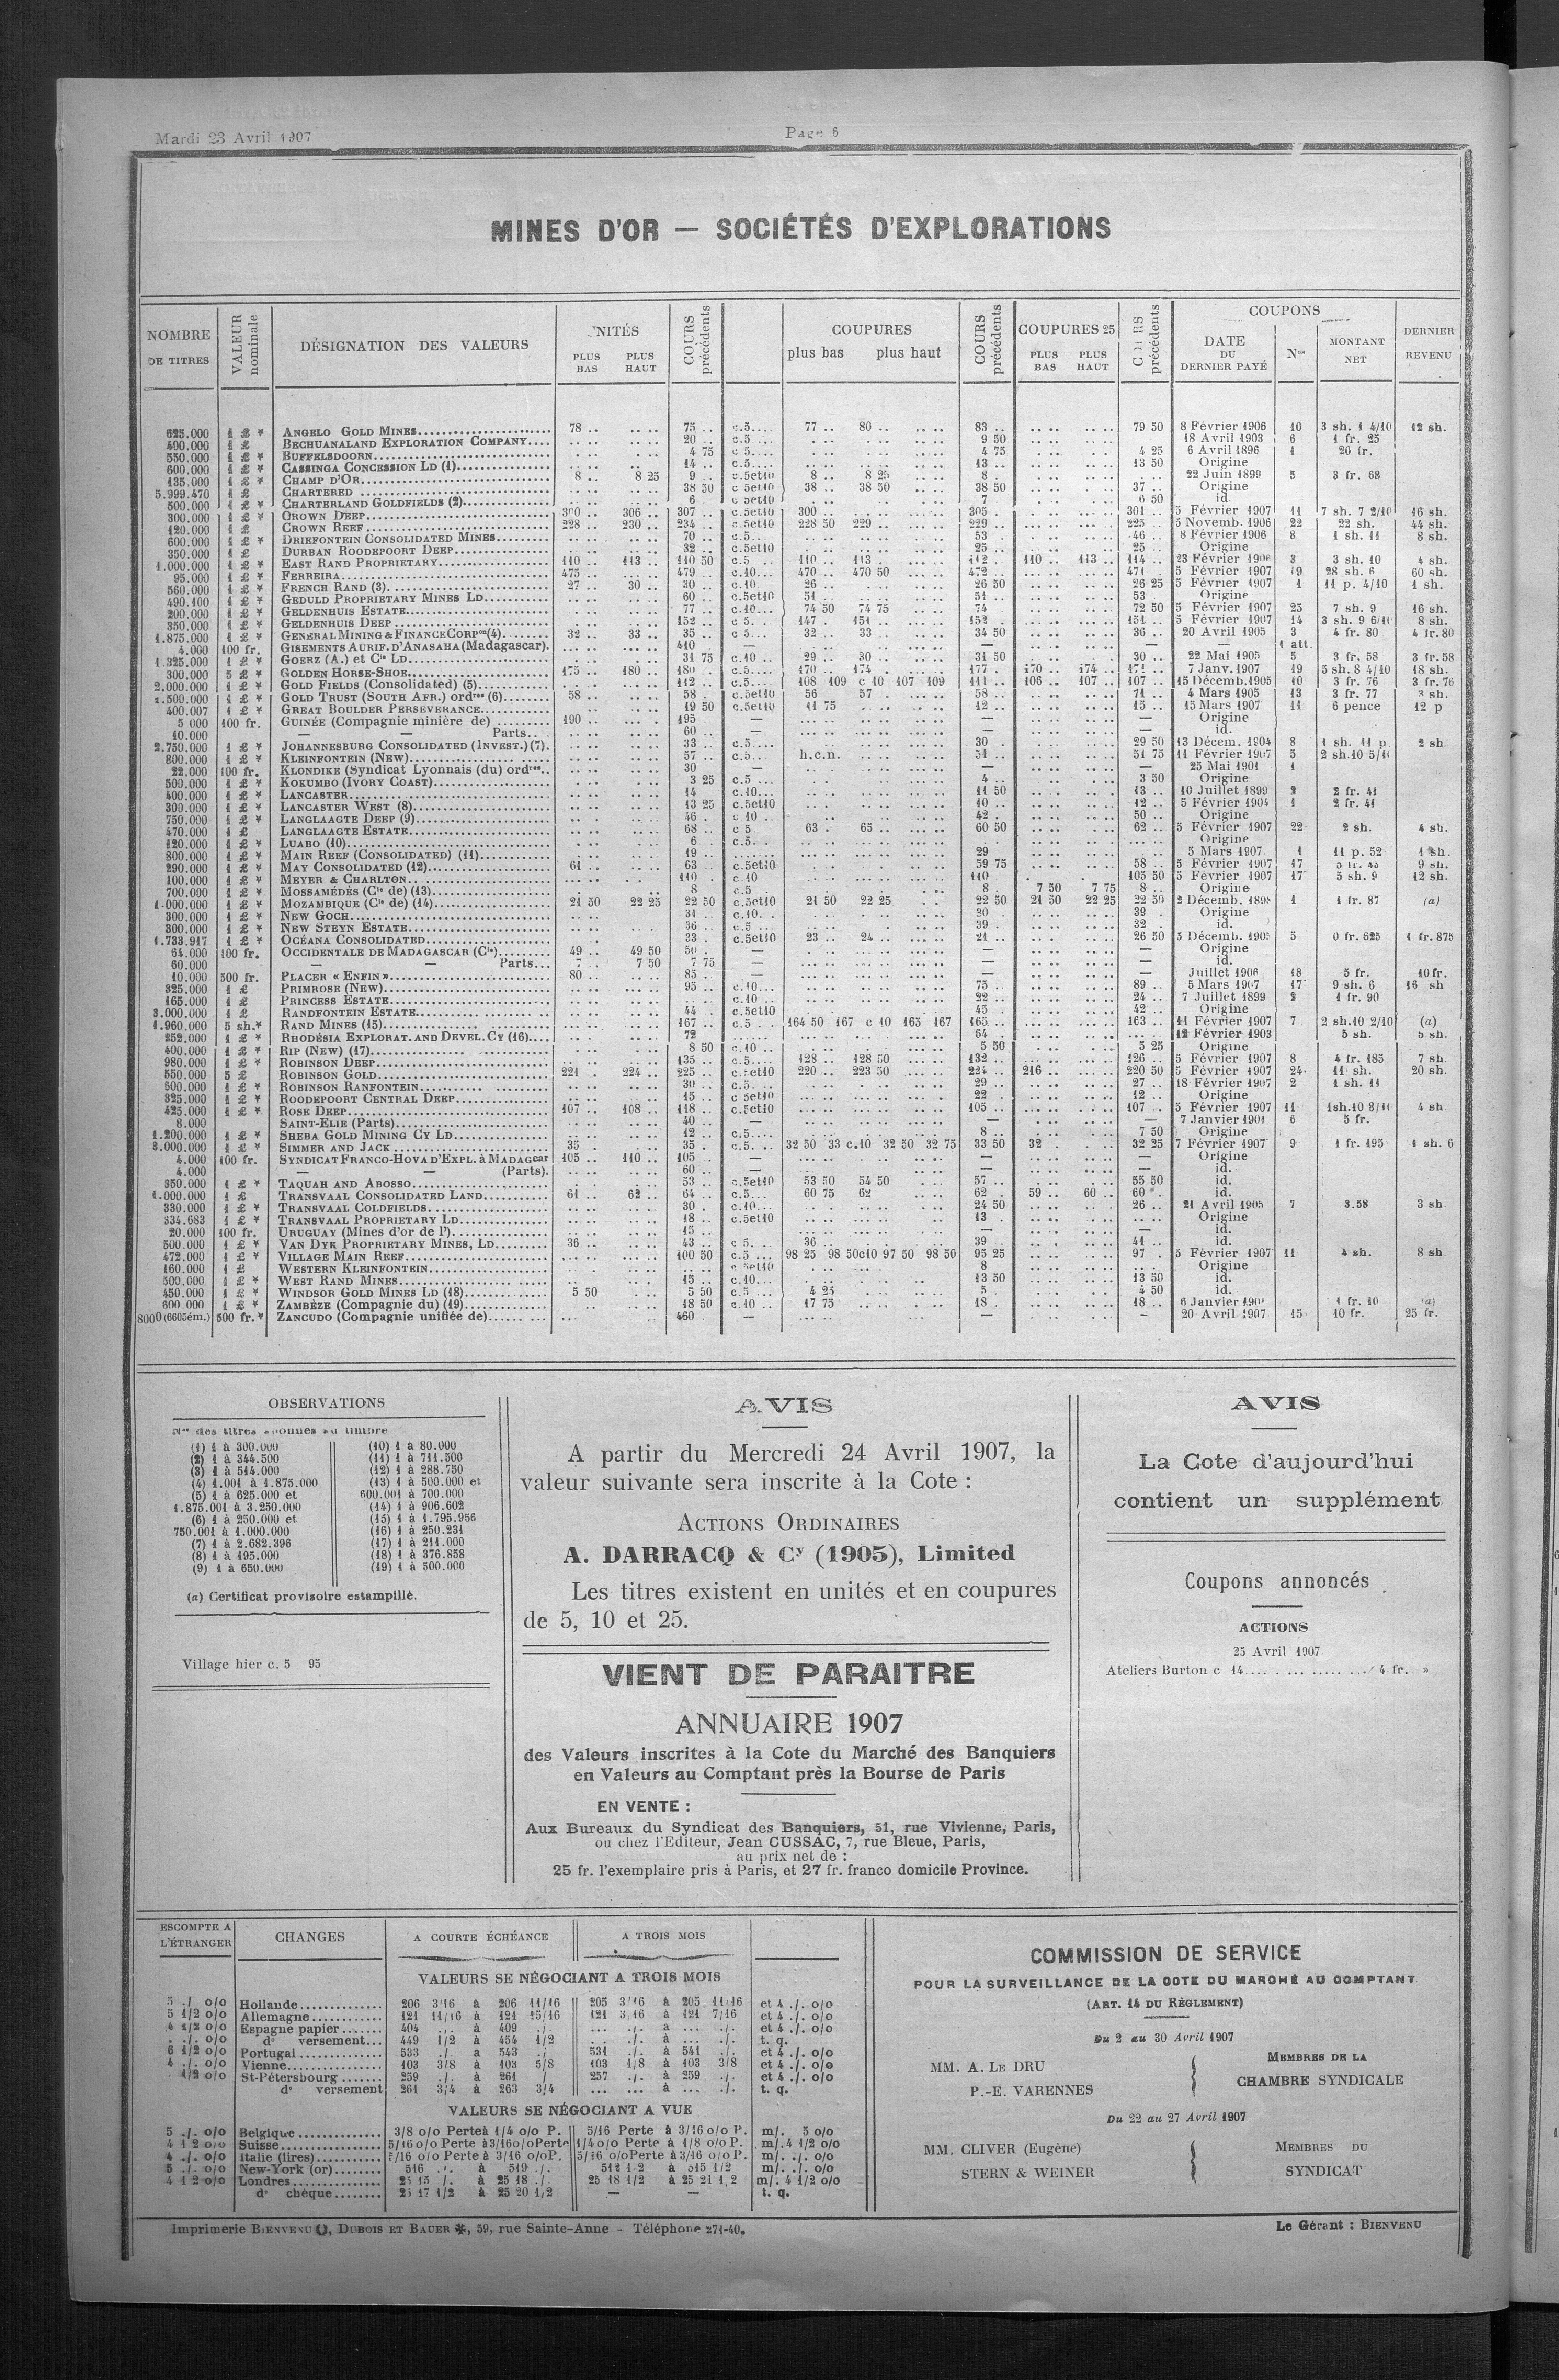 Mardi 23 Avril 1907
Page 6
MINES D'OR — SOCIÉTÉS D'EXPLORATIONS
NOMBRE DE TITRES
VALEUR nominale
DÉSIGNATION DES VALEURS
NITÉS
PLUS BAS PLUS HAUT
COURS précédents
COUPURES
plus bas plus haut
COURS précédents
COUPURES 25
PLUS BAS PLUS HAUT
précédents
COUPONS
DATE DU DERNIER PAYÉ
Nos
MONTANT NET
DERNIER REVENU
625.000 1 £ * ANGELO GOLD MINES 78 .. 75 .. c.5.... 77 .. 80 .. 83 .. 79 50 8 Février 1906 10 3 sh. 1 4/10 12 sh.
400.000 1 £ BECHUANALAND EXPLORATION COMPANY.... 20 .. c.5 ... 9 50 18 Avril 1903 6 1 fr. 25
550.000 1 £ * BUFFELSDOORN 4 75 c 5... 4 75 4 25 6 Avril 1896 1 20 fr.
600.000 1 £ * CASSINGA CONCESSION LD (1) 14 .. c.5.... 13 .. 13 50 Origine
135.000 1 £ * CHAMP D'OR 8 .. 8 25 9 .. c.5et10 8 .. 8 25 8 . 22 Juin 1899 5 3 fr. 68
5.999.470 1 £ CHARTERED 38 50 c 5et10 38 .. 38 50 38 50 37 .. Origine
500.000 1 £ * CHARTERLAND GOLDFIELDS (2) 6 .. c 5et10 7 6 50 id.
300.000 1 £ * CROWN DEEP 300 .. 306 .. 307 .. c.5et10 300 .. 305 . 301 .. 5 Février 1907 11 7 sh. 7 2/10 16 sh.
120.000 1 £ CROWN REEF 228 .. 230 .. 234 .. c.5et10 228 50 229 .. 229 .. 225 .. 5 Novemb. 1906 22 22 sh. 44 sh.
600.000 1 £ * DRIEFONTEIN CONSOLIDATED MINES 70 .. c.5.. 53 . 46 .. 8 Février 1906 8 1 sh. 11 8 sh.
350.000 1 £ DURBAN ROODEPOORT DEEP 32 .. c.5et10 25 .. 25 .. Origine
1.000.000 1 £ * EAST RAND PROPRIETARY 110 .. 113 .. 110 50 c.5 .. 110 .. 113 . 112 . 110 .. 113 .. 114 .. 23 Février 1906 3 3 sh. 10 4 sh.
95.000 1 £ * FERREIRA 475 .. 479 .. c.10... 470 .. 470 50 472 471 .. 5 Février 1907 19 28 sh. 6 60 sh.
560.000 1 £ * FRENCH RAND (3) 27 .. 30 .. 30 .. c.10. 26 .. 26 50 26 25 5 Février 1907 1 11 p. 4/10 1 sh.
490.100 1 £ * GEDULD PROPRIETARY MINES LD 60 .. c.5et10 51 .. 51 .. 53 Origine
200.000 1 £ * GELDENHUIS ESTATE 77 .. c.10... 74 50 74 75 74 72 50 5 Février 1907 25 7 sh. 9 16 sh.
350.000 1 £ * GELDENHUIS DEEP 152 .. c 5. . 147 . 151 .. 152 . 151 .. 5 Février 1907 14 3 sh. 9 6/10 8 sh.
1.875.000 1 £ * GENERAL MINING & FINANCE CORPon (4) 32 .. 33 .. 35 .. c 5... 32 .. 33 .. 34 50 36 .. 20 Avril 1905 3 4 fr. 80 4 fr.80
4.000 100 fr. GISEMENTS AURIF. D'ANASAHA (Madagascar). 410 — — — 1 att.
1.325.000 1 £ * GOERZ (A.) et Cie LD 31 75 c.10 .. 29 .. 30 .. 31 50 30 .. 22 Mai 1905 5 3 fr. 58 3 fr.58
300.000 5 £ * GOLDEN HORSE-SHOE 175 .. 180 .. 180 .. c.5.... 170 .. 174 .. 177 .. 170 .. 174 .. 171 .. 7 Janv. 1907 19 5 sh. 8 4/10 18 sh.
2.000.000 1 £ * GOLD FIELDS (Consolidated) (5) 112 .. c.5.... 108 109 c 10 107 109 111 .. 106 .. 107 .. 107 .. 15 Décemb.1905 10 3 fr. 76 3 fr. 76
1.500.000 1 £ * GOLD TRUST (SOUTH AFR.) ordres (6) 58 .. 58 .. c.5et10 56 57 .. 58 .. 71 .. 4 Mars 1905 13 3 fr. 77 3 sh.
400.007 1 £ * GREAT BOULDER PERSEVERANCE 19 50 c.5et10 11 75 12 .. 15 .. 15 Mars 1907 11 6 pence 12 p
5 000 100 fr. GUINÉE (Compagnie minière de) 190 .. 195 — — — Origine
10.000 — — Parts.. 60 .. — — — id.
2.750.000 1 £ * JOHANNESBURG CONSOLIDATED (INVEST.) (7). 33 .. c.5.... 30 . 29 50 13 Décem. 1904 8 1 sh. 11 p 2 sh
800.000 1 £ * KLEINFONTEIN (NEW) 57 .. c.5.. h.c.n. 51 .. 51 75 11 Février 1907 5
22.000 100 fr. KLONDIKE (Syndicat Lyonnais (du) ordres.. 30 — — — 25 Mai 1901 1
500.000 1 £ * KOKUMBO (IVORY COAST) 3 25 c.5 ... 4 .. 3 50 Origine
400.000 1 £ * LANCASTER 14 c.10... 11 50 13 .. 10 Juillet 1899 2 2 fr. 41
300.000 1 £ * LANCASTER WEST (8) 13 25 c.5et10 10 .. 12 .. 5 Février 1904 1 2 fr. 41
750.000 1 £ * LANGLAAGTE DEEP (9) 46 . c 10 . 42 . 50 .. Origine
470.000 1 £ LANGLAAGTE ESTATE 68 .. c 5. 63 . 65 .. 60 50 62 .. 5 Février 1907 22 2 sh. 4 sh.
120.000 1 £ * LUABO (10) 6 . c.5. . Origine
800.000 1 £ * MAIN REEF (CONSOLIDATED) (11) 19 .. 29 5 Mars 1907 1 11 p. 52 1 sh.
290.000 1 £ * MAY CONSOLIDATED (12) 61 .. 63 .. c.5et10 59 75 58 .. 5 Février 1907 17 9 sh.
100.000 1 £ * MEYER & CHARLTON 110 . c.10 110 . 105 50 5 Février 1907 17 5 sh. 9 12 sh.
700.000 1 £ * MOSSAMÉDÈS (Cie de) (13) 8 c.5 . 8 . 7 50 7 75 8 .. Origine
1.000.000 1 £ * MOZAMBIQUE (Cie de) (14) 21 50 22 25 22 50 c.5et10 21 50 22 25 22 50 21 50 22 25 22 50 2 Décemb. 1898 1 1 fr. 87 (a)
300.000 1 £ * NEW GOCH 31 .. c.10. . 20 . 39 . Origine
300.000 1 £ * NEW STEYN ESTATE 36 .. c.5 ... 39 . 32 . id.
1.733.917 1 £ * OCÉANA CONSOLIDATED 23 . c.5et10 23 .. 24 .. 21 .. 26 50 5 Décemb. 1905 5 0 fr. 625 1 fr.875
64.000 100 fr. OCCIDENTALE DE MADAGASCAR (Cie) 49 .. 49 50 50 . — — — Origine
60.000 — Parts... 7 .. 7 50 7 75 — — — id.
10.000 500 fr. PLACER « ENFIN » 80 .. 85 .. — — — Juillet 1906 18 5 fr. 10 fr.
325.000 1 £ PRIMROSE (NEW) 95 .. c.10... 75 .. 89 .. 5 Mars 1907 17 9 sh. 6 16 sh
165.000 1 £ PRINCESS ESTATE c.10 .. 22 .. 24 .. 7 Juillet 1899 2 1 fr. 90
3.000.000 1 £ RANDFONTEIN ESTATE 44 . c.5et10 45 . 42 .. Origine
1.960.000 5 sh.* RAND MINES (15) 167 .. c.5 . . 164 50 167 c 10 165 167 165 .. 163 .. 11 Février 1907 7 2 sh.10 2/10 (a)
252.000 1 £ * RHODÉSIA EXPLORAT. AND DEVEL. CY (16) 72 64 . 12 Février 1903 5 sh. 5 sh.
400.000 1 £ * RIP (NEW) (17) 8 50 c.10 .. 5 50 5 25 Origine
980.000 1 £ * ROBINSON DEEP 135 .. c.5.... 128 .. 128 50 132 .. 126 .. 5 Février 1907 8 4 fr. 185 7 sh.
550.000 5 £ ROBINSON GOLD 221 .. 224 .. 225 .. c.5et10 220 .. 223 50 224 .. 216 .. 220 50 5 Février 1907 24 11 sh. 20 sh.
600.000 1 £ * ROBINSON RANFONTEIN 30 .. c.5. .. 29 .. 27 .. 18 Février 1907 2 1 sh. 11
325.000 1 £ * ROODEPOORT CENTRAL DEEP 15 .. c 5et10 22 . 12 .. Origine
425.000 1 £ * ROSE DEEP 107 .. 108 .. 118 .. c.5et10 105 .. 107 .. 5 Février 1907 11 1sh.10 8/10 4 sh
8.000 SAINT-ELIE (Parts) 40 .. — — — 7 Janvier 1901 6 5 fr.
1.200.000 1 £ * SHEBA GOLD MINING CY LD 12 .. c.5.... 8 .. 7 50 Origine
3.000.000 1 £ * SIMMER AND JACK 35 35 . c.5. .. 32 50 33 c.10 32 50 32 75 33 50 32 .. 32 25 7 Février 1907 9 1 fr. 195 1 sh. 6
4.000 100 fr. SYNDICAT FRANCO-HOVA D'EXPL. à MADAGcar 105 .. 110 .. 105 .. — — — Origine
4.000 — — (Parts). 60 .. — — — id.
350.000 1 £ * TAQUAH AND ABOSSO 53 .. c.5et10 53 50 54 50 57 .. 55 50 id.
1.000.000 1 £ TRANSVAAL CONSOLIDATED LAND 61 .. 62 .. 64 .. c.5... 60 75 62 62 . 59 .. 60 .. 60 . id.
330.000 1 £ * TRANSVAAL COLDFIELDS 30 . c.10... 24 50 26 .. 21 Avril 1905 7 3.58 3 sh
334.683 1 £ * TRANSVAAL PROPRIETARY LD 18 .. c.5et10 13 . Origine
20.000 100 fr. URUGUAY (Mines d'or de l') 15 .. — — — id.
500.000 1 £ * VAN DYK PROPRIETARY MINES, LD 36 .. 43 .. c 5. 36 .. 39 . 41 .. id.
472.000 1 £ * VILLAGE MAIN REEF 100 50 c.5 ... 98 25 98 50c10 97 50 98 50 95 25 97 . 5 Février 1907 11 4 sh. 8 sh
160.000 1 £ WESTERN KLEINFONTEIN c 5et10 8 Origine
500.000 1 £ * WEST RAND MINES 15 .. c.10... 13 50 13 50 id.
450.000 1 £ * WINDSOR GOLD MINES LD (18) 5 50 5 50 c.5 ... 4 25 5 . 4 50 id.
600.000 1 £ * ZAMBÈZE (Compagnie du) (19) 18 50 c.10 .. 17 75 18 . 18 .. 6 Janvier 1 fr. 10 (a)
8000 (6605ém.) 500 fr.* ZANCUDO (Compagnie unifiée de) 460 — — — 20 Avril 1907 15 10 fr. 25 fr.
OBSERVATIONS
Nos des titres
(1) 1 à 300.000
(2) 1 à 344.500
(3) 1 à 514.000
(4) 1.001 à 1.875.000
(5) 1 à 625.000 et
1.875.001 à 3.250.000
(6) 1 à 250.000 et
750.001 à 1.000.000
(7) 1 à 2.682.396
(8) 1 à 195.000
(9) 1 à 650.000
(10) 1 à 80.000
(11) 1 à 711.500
(12) 1 à 288.750
(13) 1 à 500.000 et
600.001 à 700.000
(14) 1 à 906.602
(15) 1 à 1.795.956
(16) 1 à 250.231
(17) 1 à 211.000
(18) 1 à 376.858
(19) 1 à 500.000
(a) Certificat provisoire estampillé.
Village hier c. 5 95
AVIS
A partir du Mercredi 24 Avril 1907, la
valeur suivante sera inscrite à la Cote :
ACTIONS ORDINAIRES
A. DARRACQ & Cy (1905), Limited
Les titres existent en unités et en coupures
de 5, 10 et 25.
VIENT DE PARAITRE
ANNUAIRE 1907
des Valeurs inscrites à la Cote du Marché des Banquiers
en Valeurs au Comptant près la Bourse de Paris
EN VENTE :
Aux Bureaux du Syndicat des Banquiers, 51, rue Vivienne, Paris,
ou chez l'Editeur, Jean CUSSAC, 7, rue Bleue, Paris,
au prix net de :
25 fr. l'exemplaire pris à Paris, et 27 fr. franco domicile Province.
AVIS
La Cote d'aujourd'hui
contient un supplément
Coupons annoncés
ACTIONS
25 Avril 1907
Ateliers Burton c 14 4 fr. »
ESCOMPTE A L'ÉTRANGER
CHANGES
A COURTE ÉCHÉANCE
A TROIS MOIS
VALEURS SE NÉGOCIANT A TROIS MOIS
5 ./. o/o Hollande 206 3/16 à 206 11/16 205 3/16 à 205 11/16 et 4 ./. o/o
5 1/2 o/o Allemagne 121 11/16 à 121 15/16 121 3/16 à 121 7/16 et 4 ./. o/o
4 1/2 o/o Espagne papier 404 ./. à 409 ./. ... ./. à ... ./. et 4 ./. o/o
. ./. o/o do versement... 449 1/2 à 454 1/2 ... ./. à ... ./. t. q.
6 1/2 o/o Portugal 533 ./. à 543 ./. 531 ./. à 541 ./. et 4 ./. o/o
4 ./. o/o Vienne 103 3/8 à 103 5/8 103 1/8 à 103 3/8 et 4 ./. o/o
1/2 o/o St-Pétersbourg 259 ./. à 261 / 257 ./. à 259 ./. et 4 ./. o/o
do versement 261 3/4 à 263 3/4 ... ... à ... ./. t. q.
VALEURS SE NÉGOCIANT A VUE
5 ./. o/o Belgique 3/8 o/o Perte à 1/4 o/o P. 5/16 Perte à 3/16 o/o P. m/. 5 o/o
4 1 2 o/o Suisse 5/16 o/o Perte à 3/16 o/o Perte 1/4 o/o Perte à 1/8 o/o P. m/. 4 1/2 o/o
4 ./. o/o Italie (lires) 5/16 o/o Perte à 3/16 o/o P. 5/16 o/o Perte à 3/16 o/o P. m/. ./. o/o
5 ./. o/o New-York (or) 516 ./. à 519 ./. 512 1/2 à 515 1/2 m/. ./. o/o
4 1 2 o/o Londres 25 15 /. à 25 18 ./. 25 18 1/2 à 25 21 1/2 m/. 4 1/2 o/o
do chèque 25 17 1/2 à 25 20 1/2 — — t. q.
COMMISSION DE SERVICE
POUR LA SURVEILLANCE DE LA COTE DU MARCHÉ AU COMPTANT
(ART. 14 DU RÈGLEMENT)
Du 2 au 30 Avril 1907
MM. A. LE DRU
P.-E. VARENNES
MEMBRES DE LA
CHAMBRE SYNDICALE
Du 22 au 27 Avril 1907
MM. CLIVER (Eugène)
STERN & WEINER
MEMBRES DU
SYNDICAT
Imprimerie BIENVENU, DUBOIS ET BAUER, 59, rue Sainte-Anne – Téléphone 271-40.
Le Gérant : BIENVENU